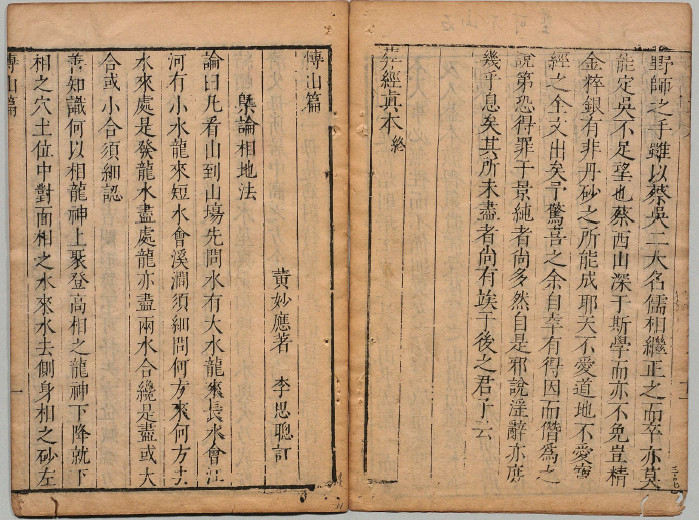 野師之手雖以蔡吳二大名儒相繼正之而卒亦莫
能定吳不足望也蔡西山深于斯學而亦不免豈精
金粹銀有非丹砂之所能成耶天不愛道地不愛寶
經之全文出矣予驚喜之余自幸有得因而僭為之
說第恐得罪于景純者尚多然自是邪說淫辭亦庶
幾乎息矣其所未盡者尚有竢于後之君子云
葬經眞本 終
博山篇
黃妙應著 李思聰訂
槩論相地法
論曰凡看山到山塲先問水有大水龍來長水會江
河有小水龍來短水會溪澗須細問何方來何方去
水來處是發龍水盡處龍亦盡兩水合纔是盡或大
合或小合須細認
善知識何以相龍神上聚登高相之龍神下降就下
相之穴土位中對面相之水來水去側身相之砂左
博山篇
一